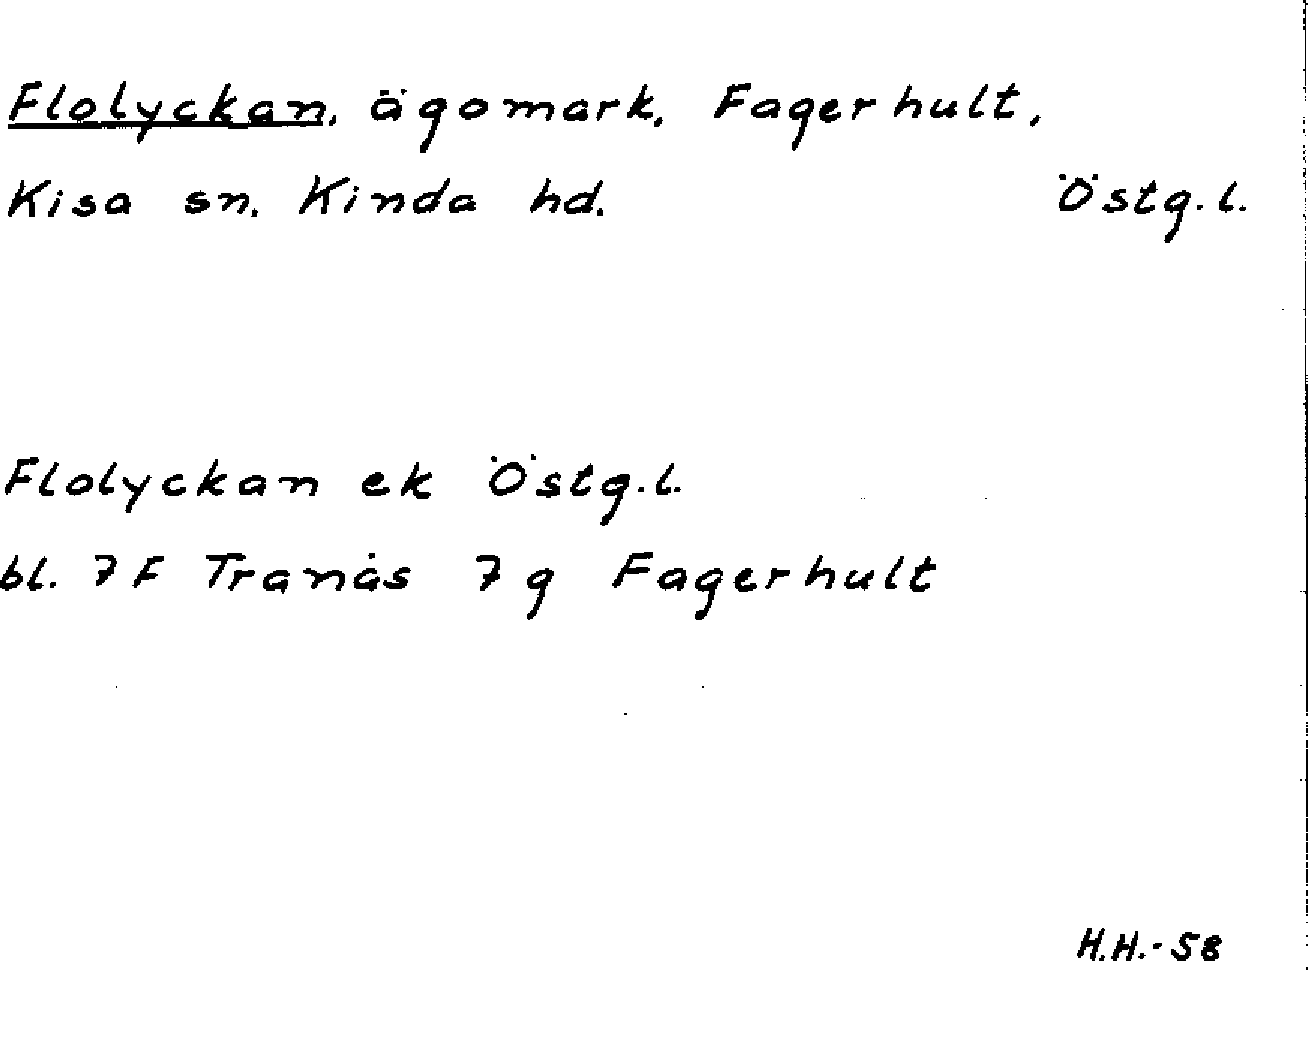 Flolyckan, ägomark, Fagerhult,
Kisa sn. Kinda hd. Östg.l.
Flolyckan ek Östg.l.
bl. 7F Tranås 7g Fagerhult
H.H.-58